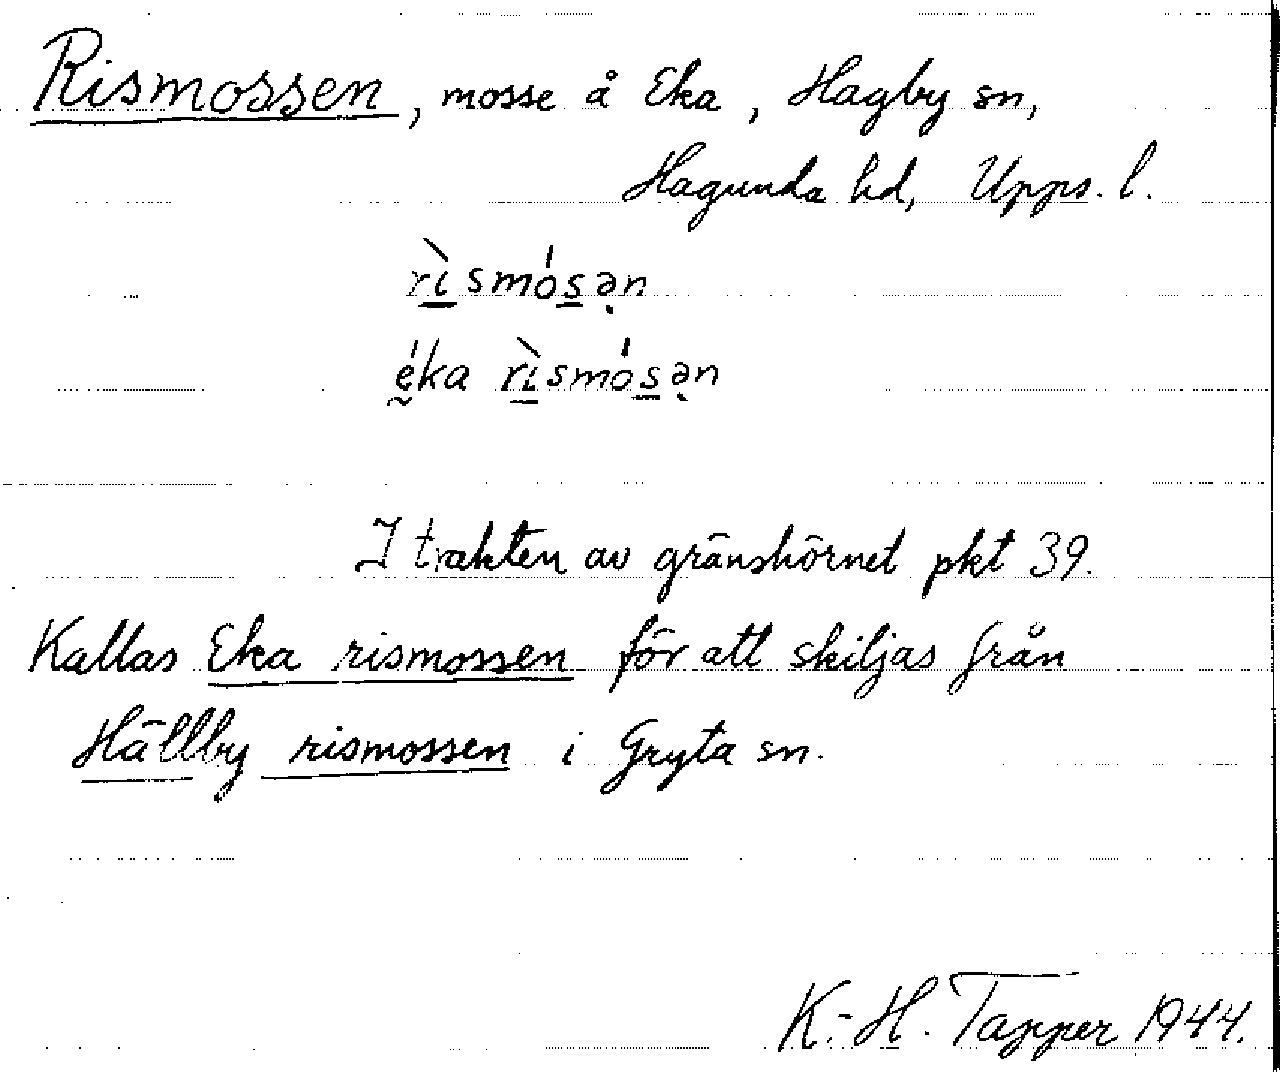 Rismossen, mosse å Eka, Hagby sn,
Hagunda hd, Upps. l.
rı̀smósə̣n
ḛ́ka rı̀smósə̣n
I trakten av gränshörnet pkt 39.
Kallas Eka rismossen för att skiljas från
Hällby rismossen i Gryta sn.
K.-H. Tapper 1944.